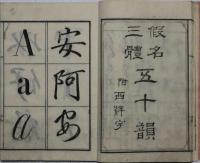 假名
三體
五十韻
附西洋字
安阿安
A a a